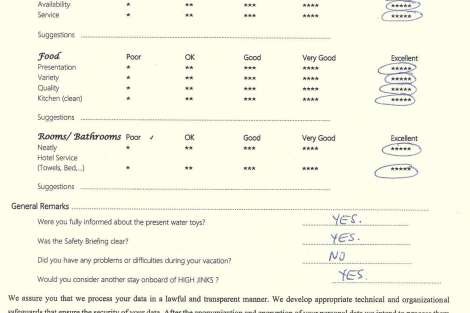 Availability * ** *** **** *****
Service * ** *** **** *****
Suggestions
Food Poor OK Good Very Good Excellent
Presentation * ** *** **** *****
Variety * ** *** **** *****
Quality * ** *** **** *****
Kitchen (clean) * ** *** **** *****
Suggestions
Rooms/ Bathrooms Poor ✓ OK Good Very Good Excellent
Neatly * ** *** **** *****
Hotel Service
(Towels, Bed,...) * ** *** **** *****
Suggestions
General Remarks
Were you fully informed about the present water toys? YES.
Was the Safety Briefing clear? YES.
Did you have any problems or difficulties during your vacation? NO
Would you consider another stay onboard of HIGH JINKS ? YES.
We assure you that we process your data in a lawful and transparent manner. We develop appropriate technical and organizational
safeguards that ensure the security of your data. After the